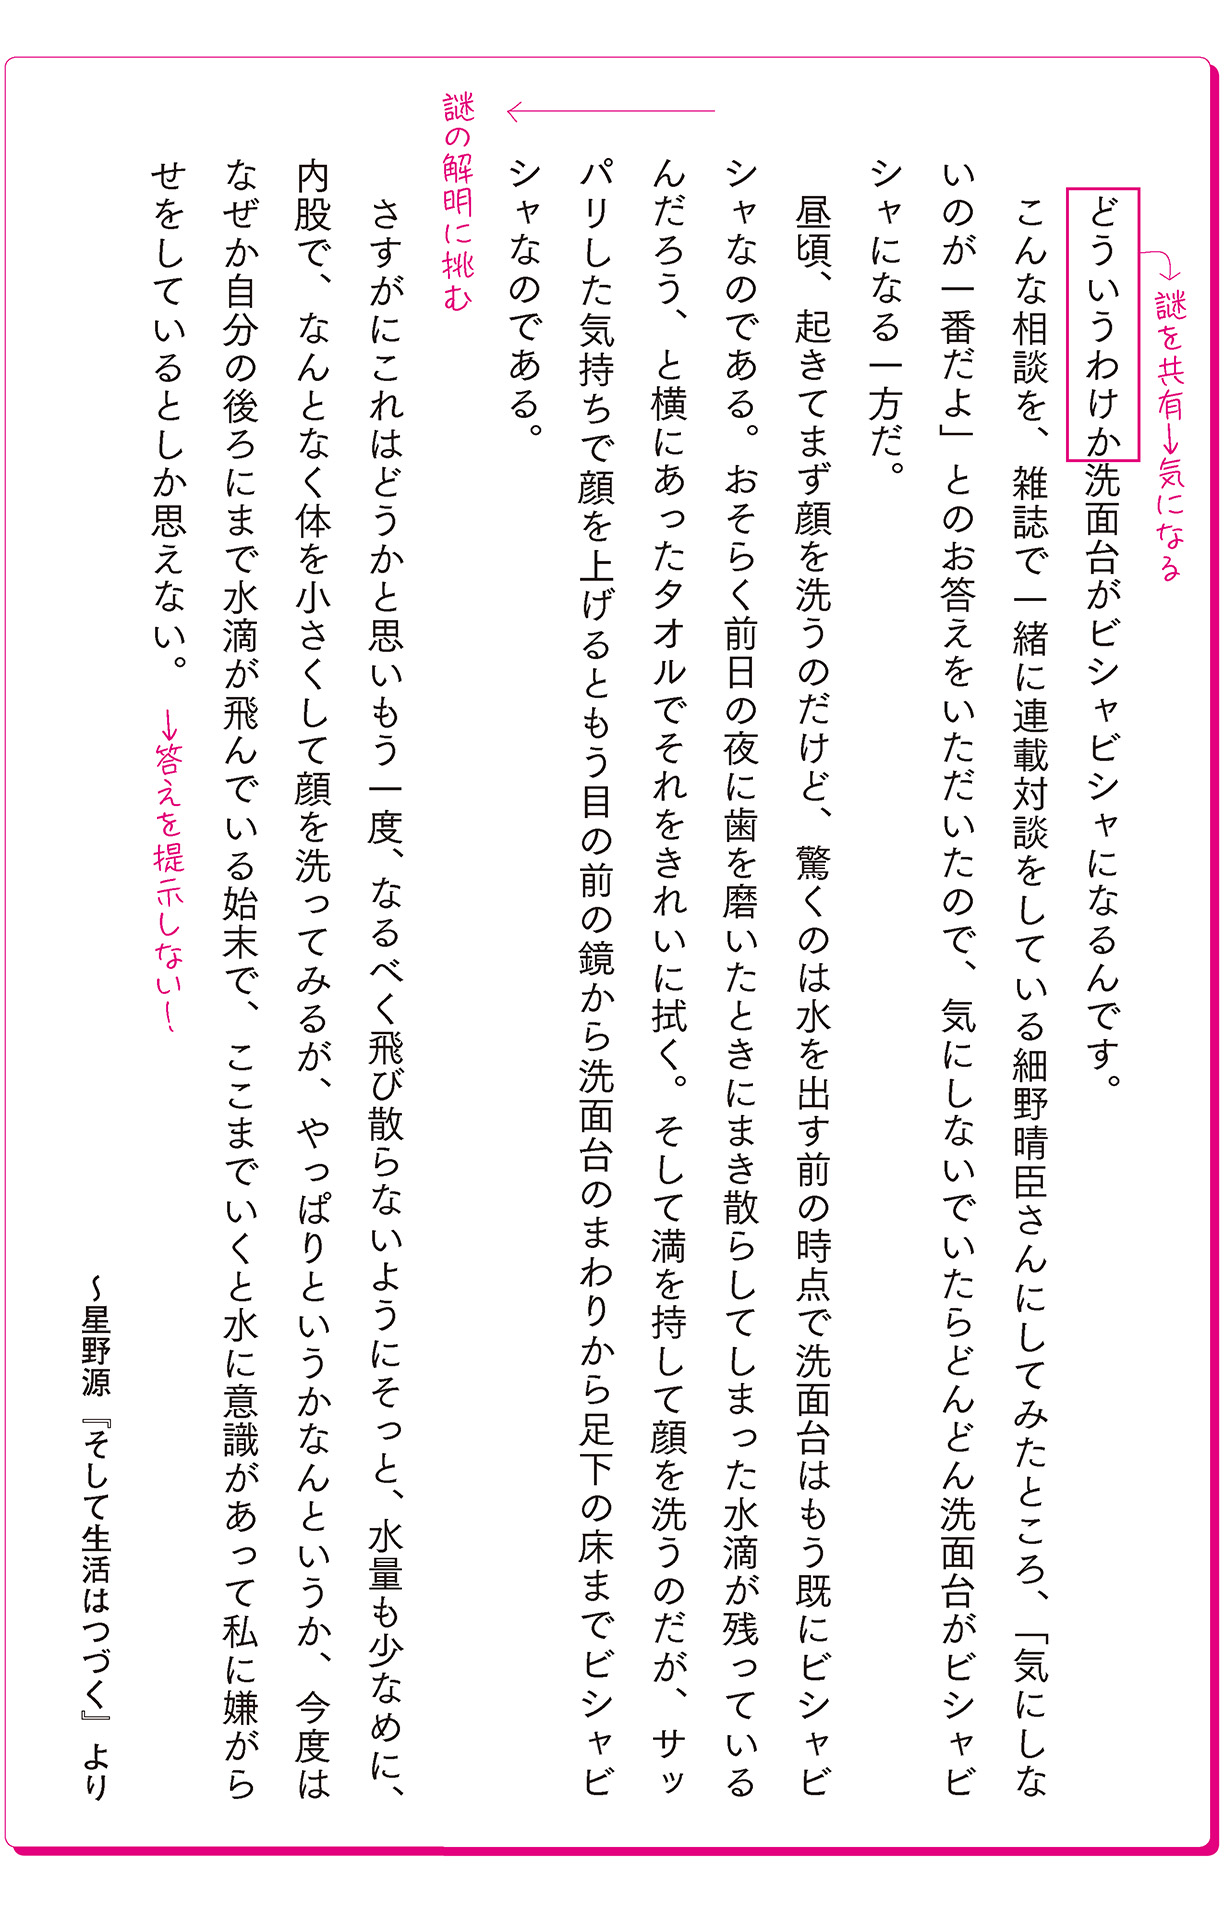 謎を共有→気になる
どういうわけか洗面台がビシャビシャになるんです。
こんな相談を、雑誌で一緒に連載対談をしている細野晴臣さんにしてみたところ、「気にしな
いのが一番だよ」とのお答えをいただいたので、気にしないでいたらどんどん洗面台がビシャビ
シャになる一方だ。
昼頃、起きてまず顔を洗うのだけど、驚くのは水を出す前の時点で洗面台はもう既にビシャビ
シャなのである。おそらく前日の夜に歯を磨いたときにまき散らしてしまった水滴が残っている
んだろう、と横にあったタオルでそれをきれいに拭く。そして満を持して顔を洗うのだが、サッ
パリした気持ちで顔を上げるともう目の前の鏡から洗面台のまわりから足下の床までビシャビ
シャなのである。
謎の解明に挑む
さすがにこれはどうかと思いもう一度、なるべく飛び散らないようにそっと、水量も少なめに、
内股で、なんとなく体を小さくして顔を洗ってみるが、やっぱりというかなんというか、今度は
なぜか自分の後ろにまで水滴が飛んでいる始末で、ここまでいくと水に意識があって私に嫌がら
せをしているとしか思えない。
→答えを提示しない!
〜星野源『そして生活はつづく』より